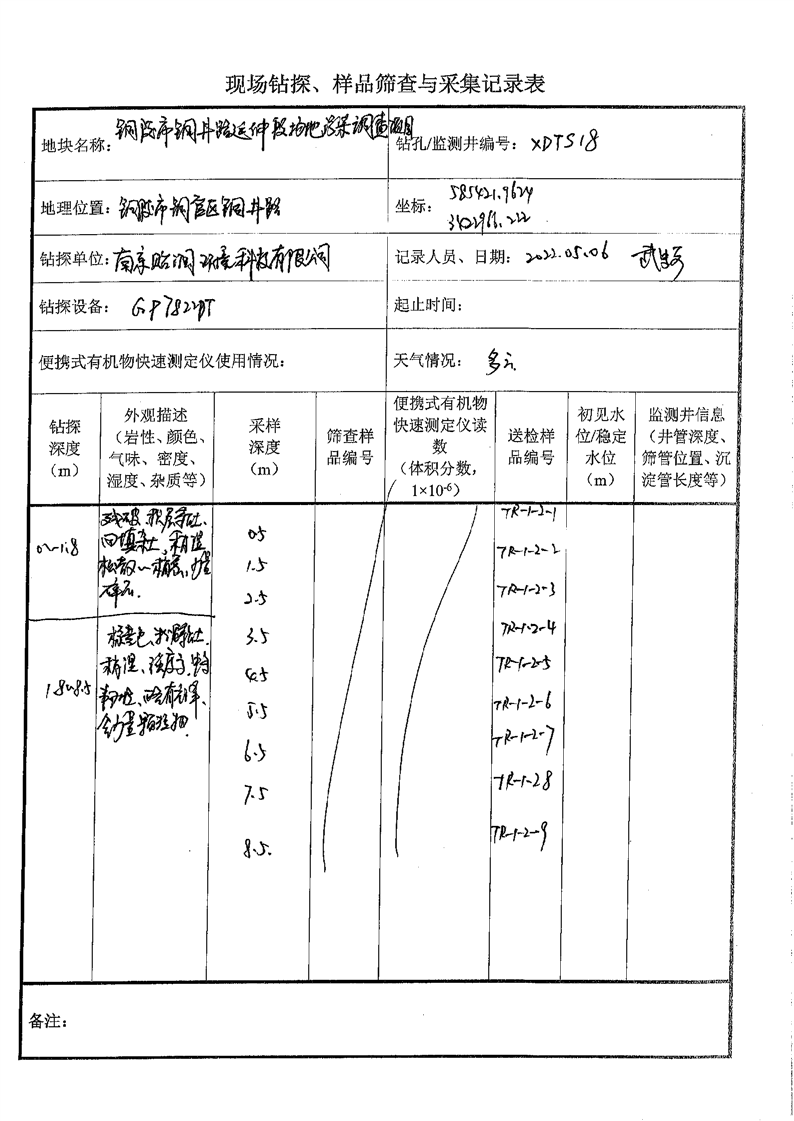 现场钻探、样品筛查与采集记录表
地块名称: 铜陵市铜井路延伸段场地污染调查项目
钻孔/监测井编号: XDTS18
地理位置: 铜陵市铜官区铜井路
坐标: 585421.9624
3422961.222
钻探单位: 南京 环境科技有限公司
记录人员、日期: 2022.05.06
钻探设备: GP7822DT
起止时间:
便携式有机物快速测定仪使用情况:
天气情况: 多云
钻探
深度
(m)
外观描述
(岩性、颜色、
气味、密度、
湿度、杂质等)
采样
深度
(m)
筛查样
品编号
便携式有机物
快速测定仪读
数
(体积分数,
1×10-6)
送检样
品编号
初见水
位/稳定
水位
(m)
监测井信息
(井管深度、
筛管位置、沉
淀管长度等)
0~1.8
回填杂土、稍湿
碎石.
1.8~8.5
稍湿、
0.5
1.5
2.5
3.5
4.5
5.5
6.5
7.5
8.5.
TR-1-2-1
TR-1-2-2
TR-1-2-3
TR-1-2-4
TR-1-2-5
TR-1-2-6
TR-1-2-7
TR-1-28
TR-1-2-9
备注: